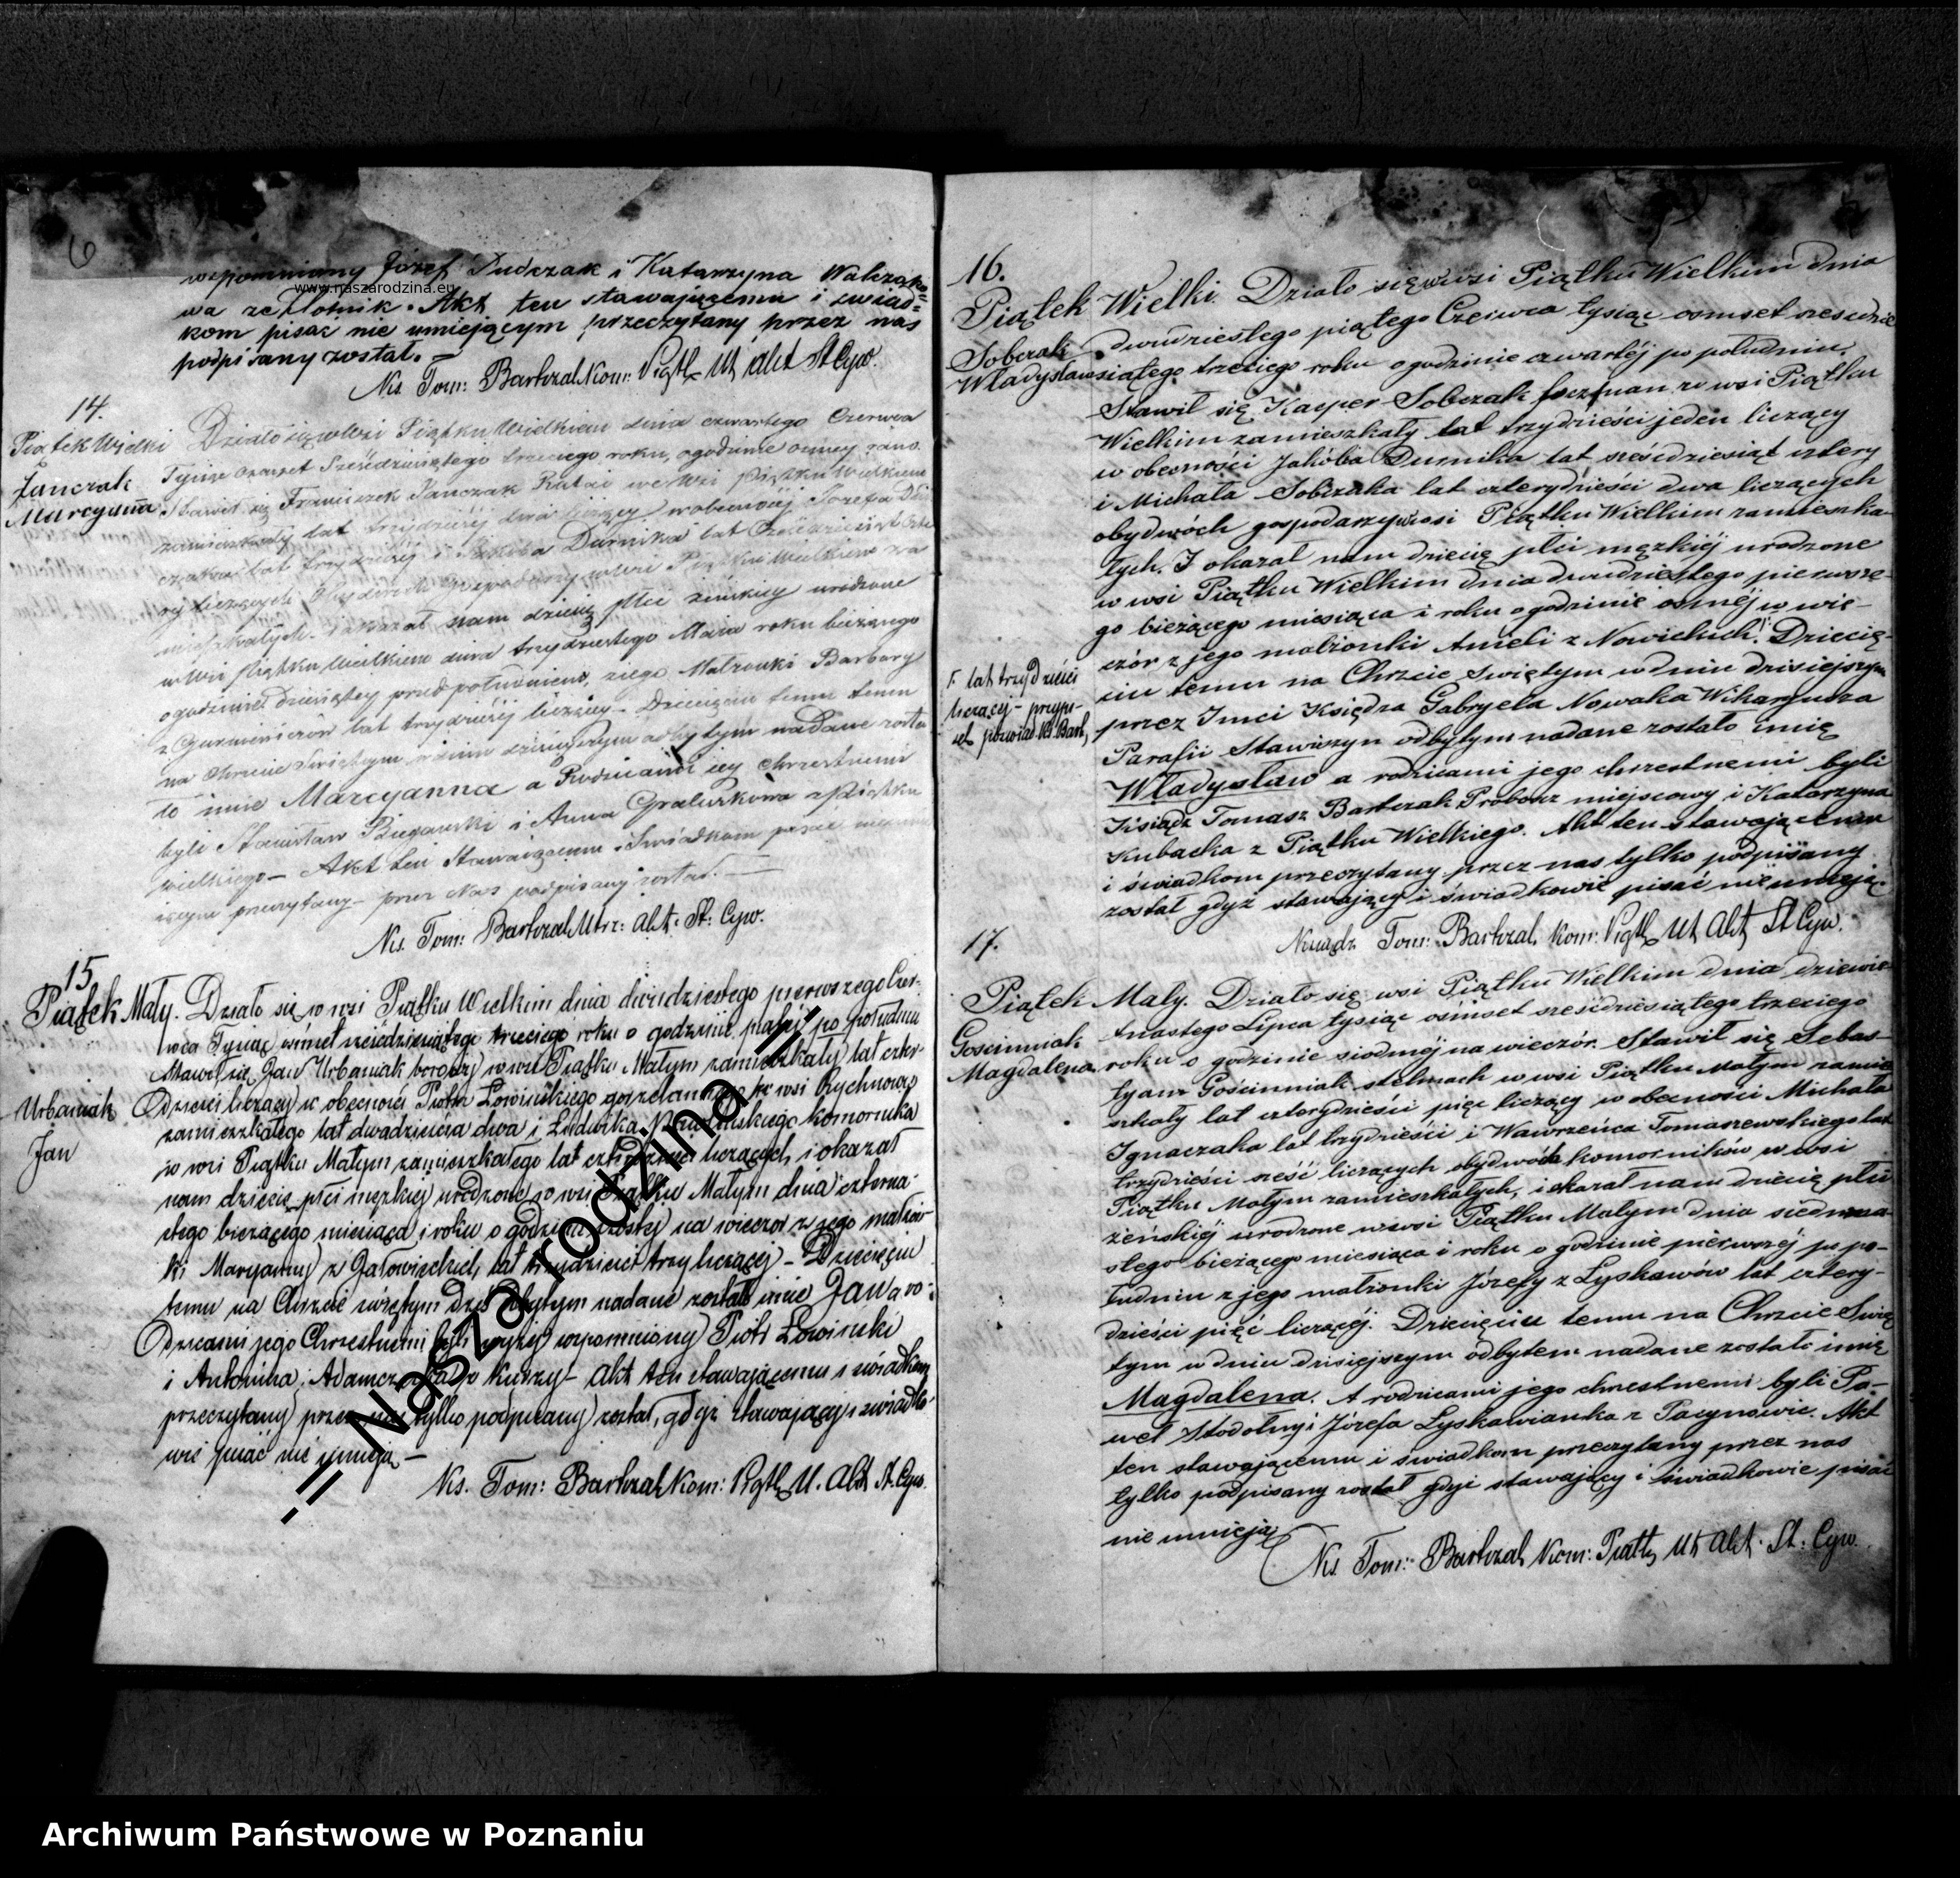 6
wspomniany Józef Dudczak i Katarzyna Walczako=
wa ze Złotnik. Akt ten stawającemu i świad=
kom pisać nie umiejącym przeczytany przez nas
podpisany został. —
Ks. Tom: Bartczak Kom: Piątk: Ut: Akt St Cyw.
www.naszarodzina.eu
14.
Piątek Wielki
Janczak
Marcyanna
Działo się we Wsi Piątku Wielkiem dnia czwartego Czerwca
Tysiąc Ośmset Sześćdziesiątego trzeciego roku, o godzinie ósmey rano.
Stawił się Franciszek Janczak we Wsi Piątku Wielkiem
zamieszkały lat trzydzieści dwa liczący w obecności Józefa
lat trzydzieści i Jakóba Durnika lat Sześćdziesiąt
liczących Gospodarzy w Wsi Piątku Wielkiem
i okazał nam dziecię płci żeńskiey urodzone
w Wsi Piątku Wielkiem dnia trzydziestego Maia roku bieżącego
o godzinie dziewiątey przed południem, z iego Małżonki Barbary
z lat trzydzieści liczącey — Dziecięciu temu
na Chrzcie Świętym w dniu dzisieyszym odbytym nadane zosta
ło imie Marcyanna a Rodzicami iey chrzestnemi
byli Stanisław Biegański i Anna z Piątku
wielkiego — Akt ten Stawaiącemu i Świadkom pisać
przeczytany — przez Nas podpisany został. —
Ks. Tom: Bartczak Utrz: Akt. St: Cyw.
15
Piątek Mały.
Urbaniak
Jan
Działo się w wsi Piątku Wielkim dnia dwudziestego pierwszego Czer-
wca Tysiąc ośmset sześćdziesiątego trzeciego roku o godzinie piątej po południu
Stawił się Jan Urbaniak w wsi Piątku Małym zamieszkały lat czter-
dzieści liczący w obecności Piotra Łowińskiego we wsi Rychnowie
zamieszkałego lat dwadzieścia dwa i Ludwika komornika
w wsi Piątku Małym zamieszkałego lat liczących i okazał
nam dziecię płci męzkiej urodzone w wsi Piątku Małym dnia czterna-
stego bieżącego miesiąca i roku o godzinie szóstej na wieczór z jego małżon-
ki Maryanny z Gałowieckich lat trzydzieści trzy liczącej — Dziecięciu
temu na Chrzcie świętym Dziś odbytym nadane zostało imie Jan a ro-
dzicami jego Chrzestnemi byli wyżej wspomniony Piotr Łowiński
i Antonina Adamczewska z Kuźzy — Akt ten stawającemu i świadkom
przeczytany przez nas tylko podpisany został, gdyż stawający i świadko-
wie pisać nie umieją —
Ks. Tom: Bartczak Kom: Piątk: U. Akt St. Cyw.
-=Nasza rodzina=-
16.
Piątek Wielki.
Sobczak
Władysław
Działo się w wsi Piątku Wielkim dnia
dwudziestego piątego Czerwca tysiąc ośmset sześćdzie
siątego trzeciego roku o godzinie czwartéj po południu.
Stawił się Kacper Sobczak we wsi Piątku
Wielkim zamieszkały lat trzydzieści jeden liczący
w obecności Jakóba Durnika lat sześćdziesiąt cztery
i Michała Sobczaka lat czterydzieści dwa liczących
obydwóch gospodarzy w wsi Piątku Wielkim zamieszka-
łych. I okazał nam dziecię płci męzkiéj urodzone
w wsi Piątku Wielkim dnia dwudziestego pierwsze-
go bieżącego miesiąca i roku o godzinie ósméj w wie-
czór z jego małżonki Anieli z Nowickich. Dziecię-
ciu temu na Chrzcie świętym w dniu dzisiejszym
przez Imci Księdza Gabryela Nowaka Wikaryusza
Parafii Stawiszyn odbytym nadane zostało imię
Władysław a rodzicami jego chrzestnemi byli
Ksiądz Tomasz Bartczak Proboszcz miejscowy i Katarzyna
Kubacka z Piątku Wielkiego. Akt ten stawającemu
i świadkom przeczytany przez nas tylko podpisany
został gdyż stawający i świadkowie pisać nie umieją.
Ksiądz Tom: Bartczak Kom: Piątk: Ut Akt St Cyw.
lat trzydzieści
liczącej — przypi-
sek Ks. Bart,
17.
Piątek Mały.
Gościnniak
Magdalena
Działo się w wsi Piątku Wielkim dnia dziewię
tnastego Lipca tysiąc ośmset sześćdziesiątego trzeciego
roku o godzinie siódméj na wieczór. Stawił się Sebas-
tyan Gościnniak stelmach w wsi Piątku Małym zamie
szkały lat czterydzieści pięć liczący w obecności Michała
Ignaczaka lat trzydzieści i Wawrzeńca Tomaszewskiego lat
trzydzieści sześć liczących obydwóch komorników w wsi
Piątku Małym zamieszkałych, i okazał nam dziecię płci
żeńskiéj urodzone w wsi Piątku Małym dnia siedmna-
stego bieżącego miesiąca i roku o godzinie pierwszéj po po-
łudniu z jego małżonki Józefy z Łyskawów lat cztery-
dzieści pięć liczącéj. Dziecięciu temu na Chrzcie Świę
tym w dniu dzisiejszym odbytem nadane zostało imię
Magdalena. A rodzicami jego chrzestnemi byli Pa-
weł Stodolny i Józefa Łyskawianka z Pacynowic. Akt
ten stawającemu i świadkom przeczytany przez nas
tylko podpisany został gdyż stawający i świadkowie pisać
nie umieją
Ks. Tom: Bartczak Kom: Piątk: Ut Akt. St: Cyw.
Archiwum Państwowe w Poznaniu